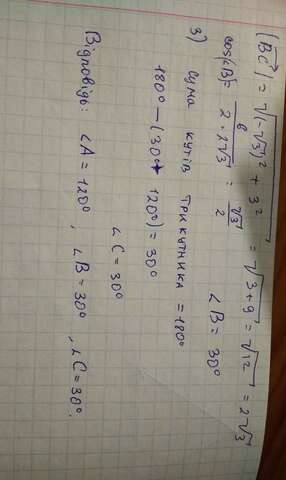 |BC⃗| = √((-√3)² + 3²) = √(3+9) = √12 = 2√3
cos(∠B) = 6 / (2 · 2√3) = √3 / 2    ∠B = 30°
3) Сума кутів трикутника = 180°
180° – (30° + 120°) = 30°
∠C = 30°
Відповідь: ∠A = 120°, ∠B = 30°, ∠C = 30°.